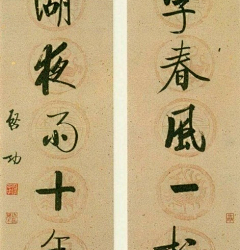 李春風一杯
湖夜雨十年
啓功